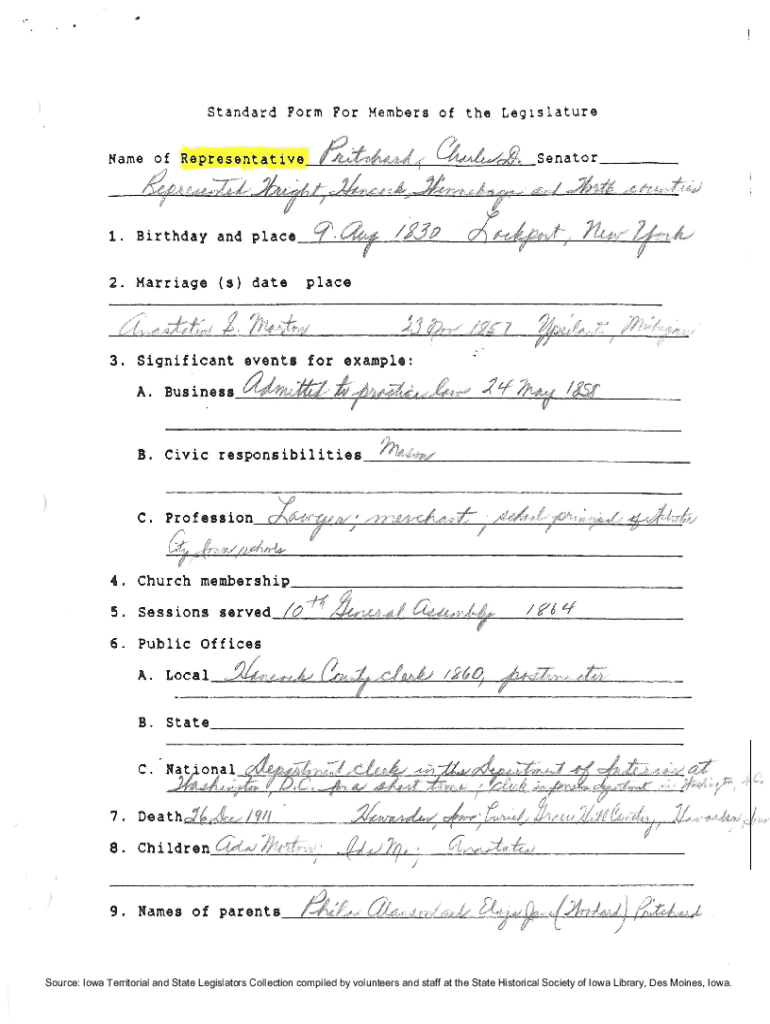 Standard Form For Members of the Legislature
Name of Representative Pritchard, Charles D. Senator
Represented Wright, Hancock, Winnebago and Worth counties
1. Birthday and place 9 Aug 1830 Lockport, New York
2. Marriage (s) date place
Anastatia E. Morton 23 Nov 1857 Ypsilanti, Michigan
3. Significant events for example:
A. Business Admitted to practice law 24 May 1858
B. Civic responsibilities Mason
C. Profession Lawyer; merchant; school principal of Webster
City, Iowa schools
4. Church membership
5. Sessions served 10th General Assembly 1864
6. Public Offices
A. Local Hancock County clerk 1860, postmaster
B. State
C. National Department clerk in the Department of Interior at
Washington, D.C. for a short time; clerk in department in Washington, D.C.
7. Death 26 Dec 1911 Hawarden, Iowa; buried, Grace Hill Cemetery, Hawarden, Iowa
8. Children Ada Morton; Ida M.; Anastatia
9. Names of parents and Eliza Jane (Woodard) Pritchard
Source: Iowa Territorial and State Legislators Collection compiled by volunteers and staff at the State Historical Society of Iowa Library, Des Moines, Iowa.